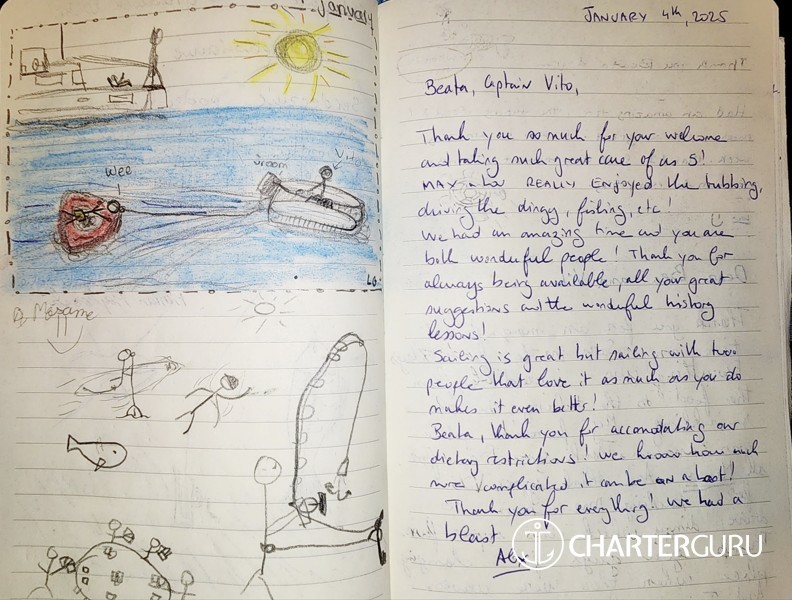 January
Wee
vroom
Vito
JANUARY 4th, 2025
Beata, Captain Vito,
Thank you so much for your welcome
and taking such great care of us 5!
MAX + Lou REALLY ENJOYED the tubbing,
driving the dingy, fishing, etc!
We had an amazing time and you are
both wonderful people! Thank you for
always being available, all your great
suggestions and the wonderful history
lessons!
Sailing is great but sailing with two
people that love it as much as you do
makes it even better!
Beata, thank you for accomodating our
dietary restrictions! We know how much
more complicated it can be on a boat!
Thank you for everything! We had a
blast
Alex
CHARTERGURU